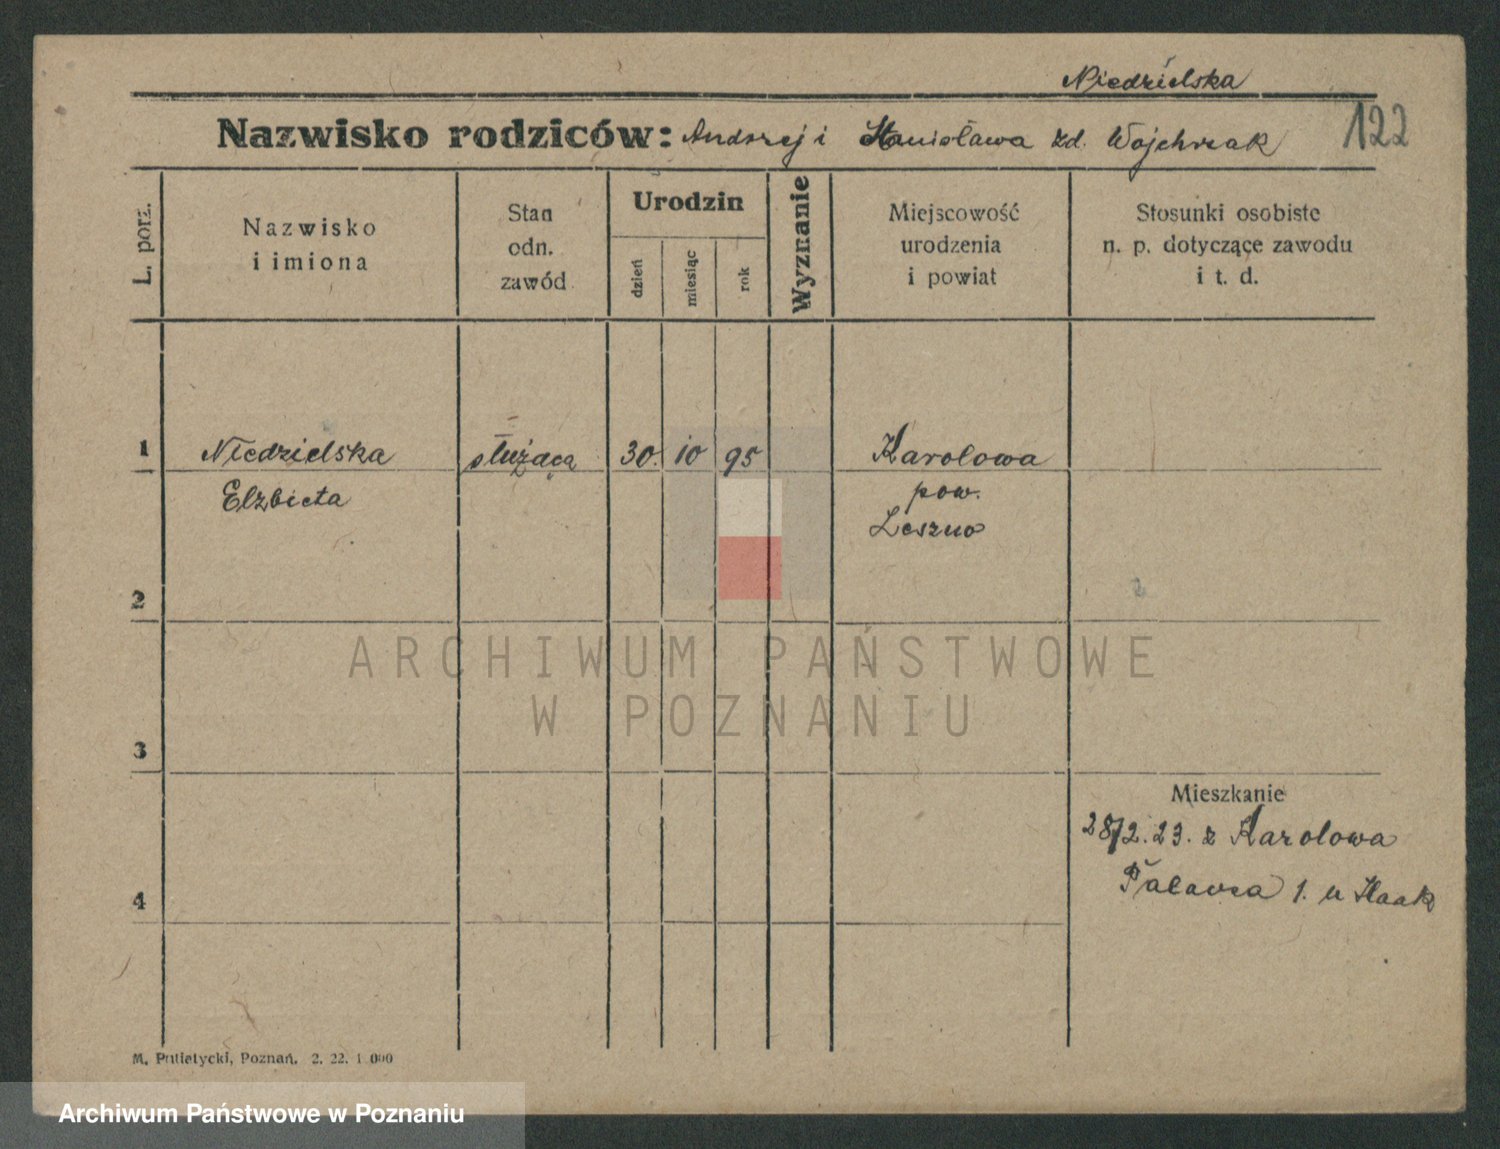 Niedzielska
Nazwisko rodziców: Andrzej i Stanisława zd. Wojchrzak
122
L. porz.
Nazwisko
i imiona
Stan
odn.
zawód
Urodzin
dzień
miesiąc
rok
Wyznanie
Miejscowość
urodzenia
i powiat
Stosunki osobiste
n. p. dotyczące zawodu
i t. d.
1 Niedzielska służąca 30. 10 95 Karolowa
Elzbieta pow.
Leszno
2
ARCHIWUM PAŃSTWOWE
W POZNANIU
3
Mieszkanie
28/2.23. z Karolowa
4 1. u Haak
M. Putiatycki, Poznań. 2. 22. 1 000
Archiwum Państwowe w Poznaniu